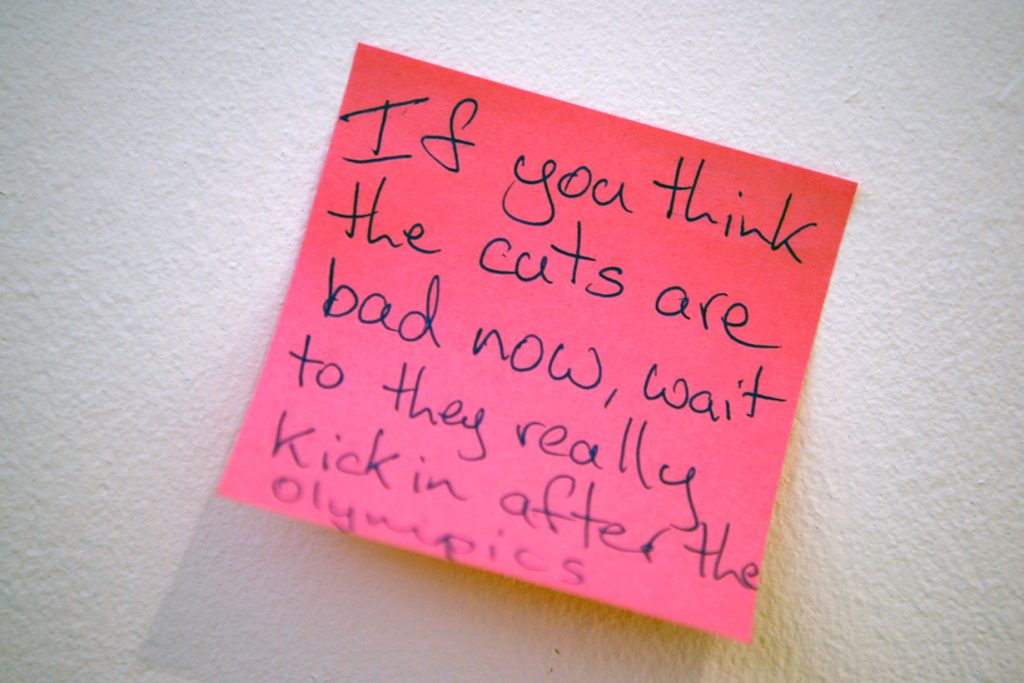 If you think
the cuts are
bad now, wait
to they really
kick in after the
olympics